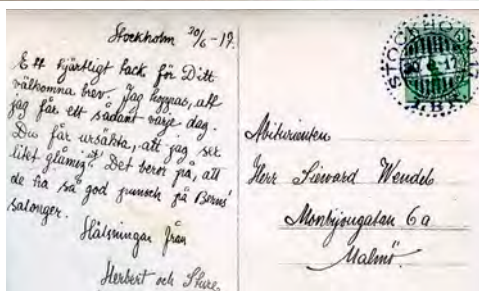 Stockholm 30/6 -17.
Ett hjärtligt tack för Ditt
välkomna brev. Jag hoppas, att
jag får ett sådant varje dag.
Du får ursäkta, att jag ser
litet glåmig ut! Det beror på, att
de ha så god punsch på Berns'
salonger.
Hälsningar från
Herbert och Sture.
STOCKHOLM 17
30 6 17
Abiturienten
Herr Sieward Wendel
Monbijougatan 6a
Malmö.